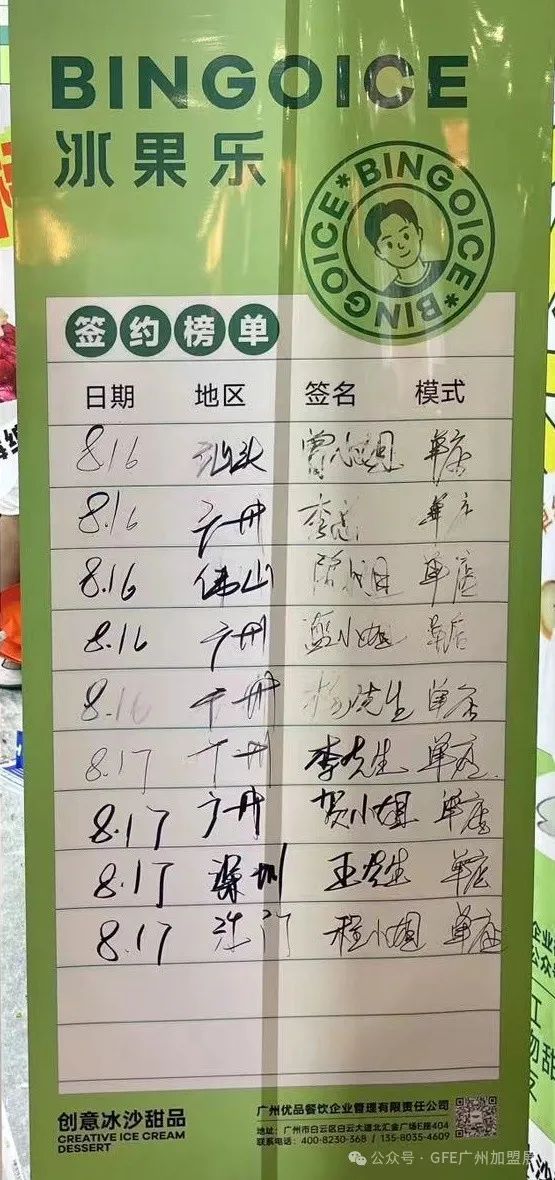 BINGOICE
冰果乐
BINGOICE*BINGOICE*BINGOICE*
签约榜单
日期 地区 签名 模式
8.16 汕头 曾小姐 单店
8.16 广州 李总 单店
8.16 佛山 陈小姐 单店
8.16 广州 蓝小姐 单店
8.16 广州 杨先生 单店
8.17 广州 李先生 单店
8.17 广州 贺小姐 单店
8.17 深圳 王先生 单店
8.17 江门 程小姐 单店
创意冰沙甜品
CREATIVE ICE CREAM
DESSERT
广州优品餐饮企业管理有限责任公司
地址：广州市白云区白云大道北汇金广场E座404
联系电话：400-8230-368 / 135-8035-4609
公众号 · GFE广州加盟展